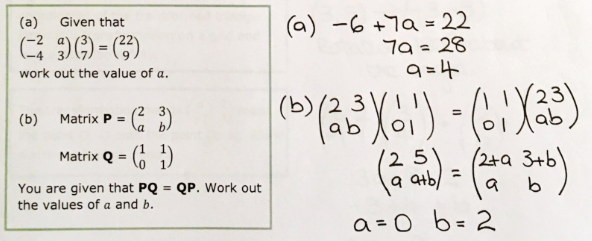 (a) Given that
(-2 a
-4 3) (3
7) = (22
9)
work out the value of a.
(b) Matrix P = (2 3
a b)
Matrix Q = (1 1
0 1)
You are given that PQ = QP. Work out
the values of a and b.
(a) -6 + 7a = 22
7a = 28
a = 4
(b) (2 3
a b) (1 1
0 1) = (1 1
0 1) (2 3
a b)
(2 5
a a+b) = (2+a 3+b
a b)
a = 0 b = 2